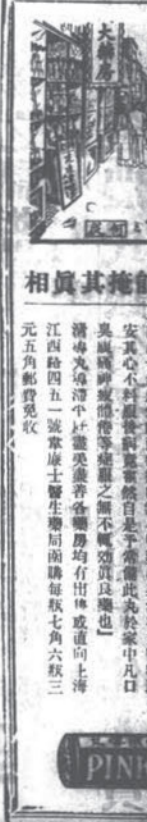 大藥房
相眞其掩能
安其心不料服後病竟霍然自是予常備此丸於家中凡口
臭頭痛神疲體倦等症服之無不輒効眞良藥也」
清導丸導滯平肝盡美盡善各藥房均有出售或直向上海
江西路四五一號韋廉士醫生藥局函購每瓶七角六瓶三
元五角郵費免收
PINK